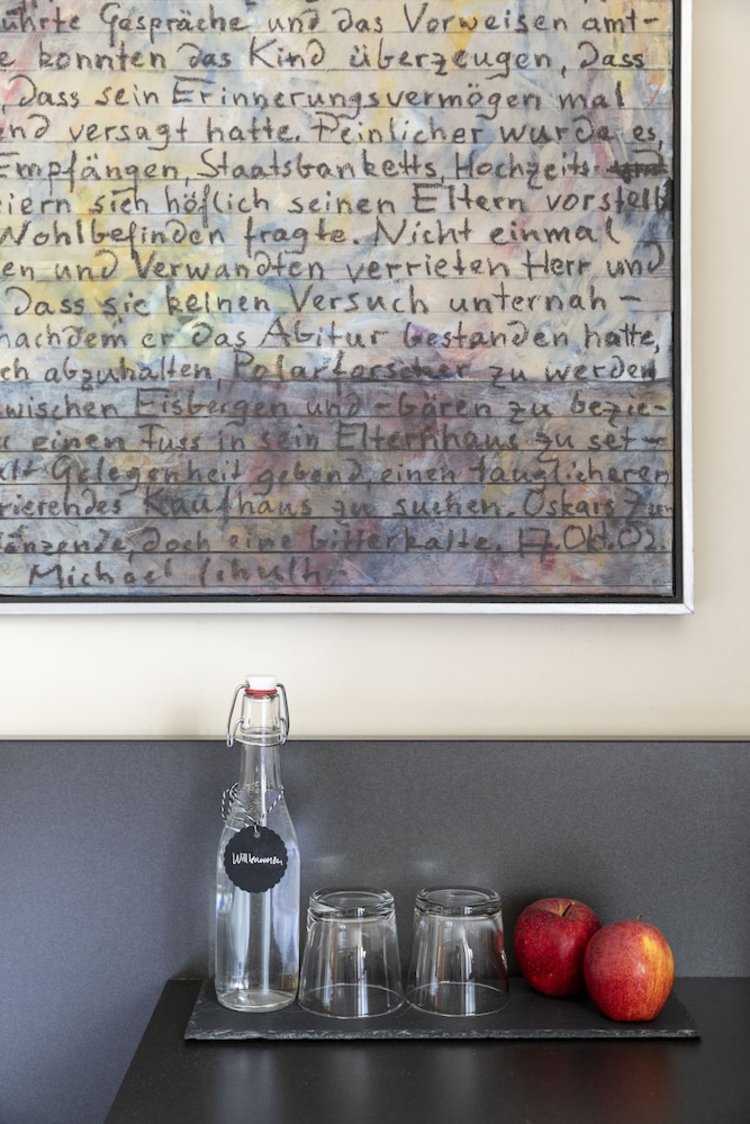 ührte Gespräche und das Vorweisen amt-
e konnten das Kind überzeugen, dass
, dass sein Erinnerungsvermögen mal
end versagt hatte. Peinlicher wurde es,
Empfängen, Staatsbanketts, Hochzeits-
eiern sich höflich seinen Eltern vorstell
Wohlbefinden fragte. Nicht einmal
en und Verwandten verrieten Herr und
dass sie keinen Versuch unternah-
nachdem er das Abitur bestanden hatte,
ch abzuhalten, Polarforscher zu werden
zwischen Eisbergen und -bären zu bezie-
r einen Fuss in sein Elternhaus zu set-
alt Gelegenheit gebend, einen tauglicheren
rierendes Kaufhaus zu suchen. Oskars Zu-
länzende, doch eine bitterkalte. 17. Okt. 02.
Michael
Willkommen